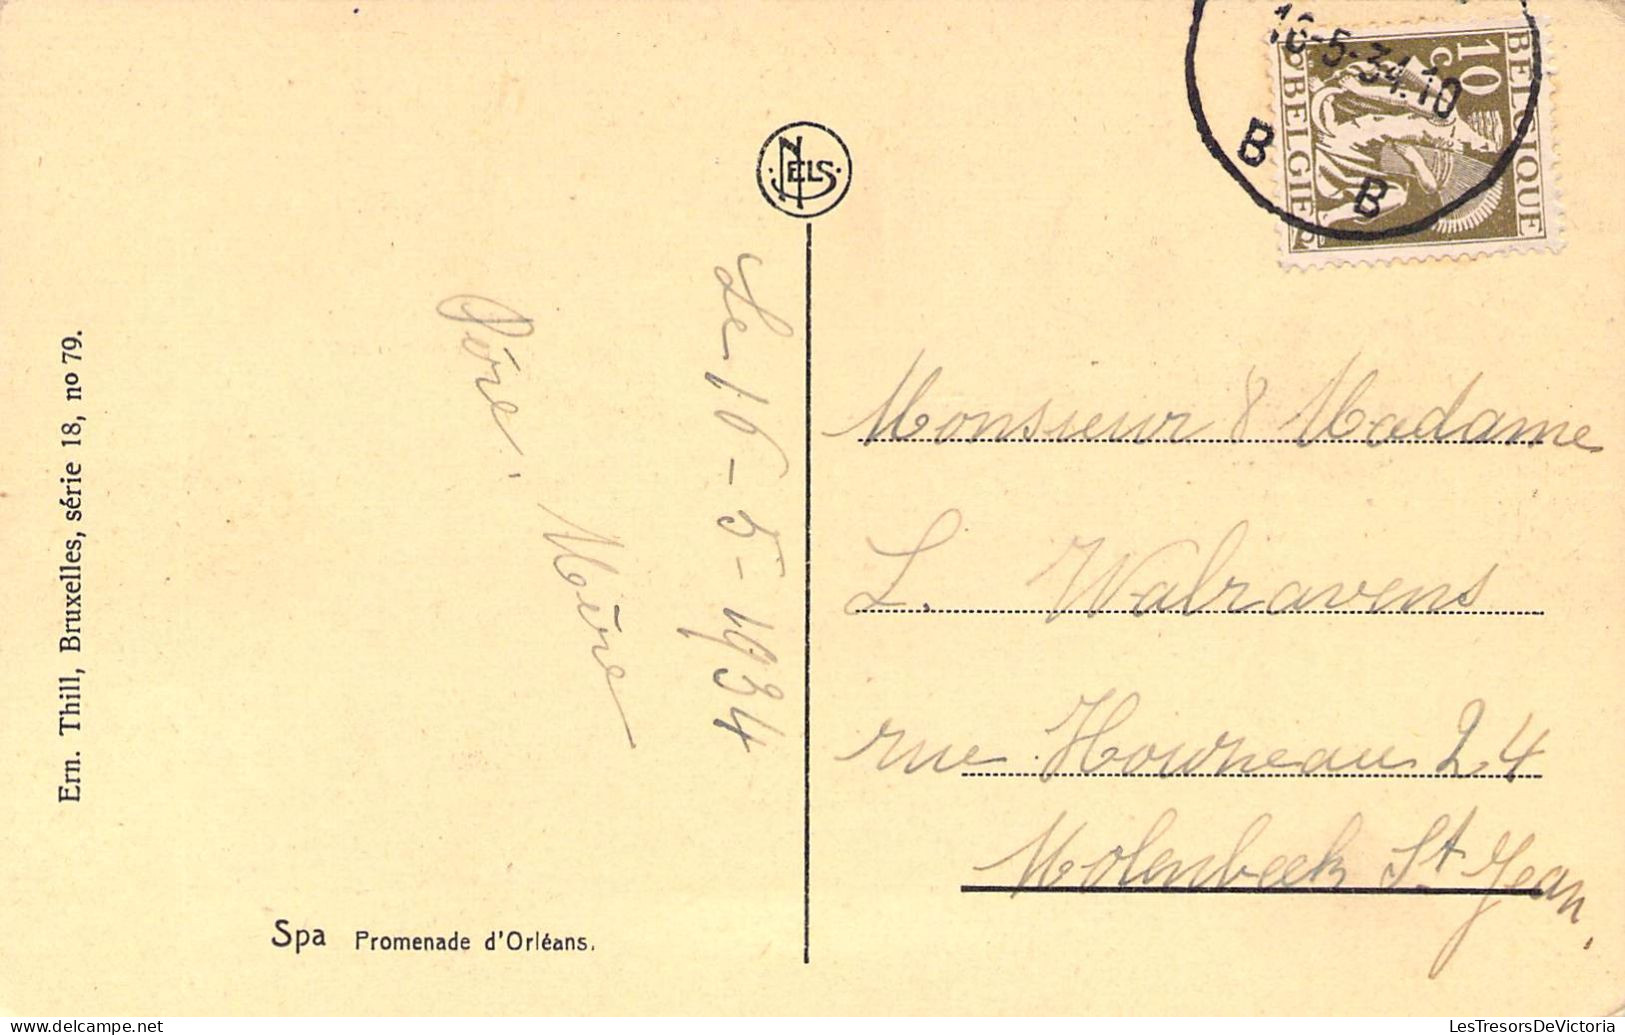 Ern. Thill, Bruxelles, série 18, nº 79.
Père. Mère
Le 16-5-1934
NELS
Spa Promenade d'Orléans.
16-5-34.10
B B
BELGIQUE
10 c
BELGIË
Monsieur & Madame
L. Walravens
rue Houzeau 24
Molenbeek St Jean,
Delcampe.net
LesTresorsDeVictoria